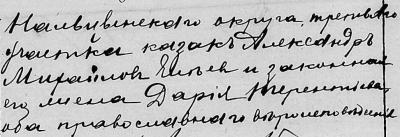 Нальчикскаго округа, третьяго
участка казакъ Александръ
Михайловъ и законная
его жена Дарія Терентьева,
оба православнаго вѣроисповѣданія